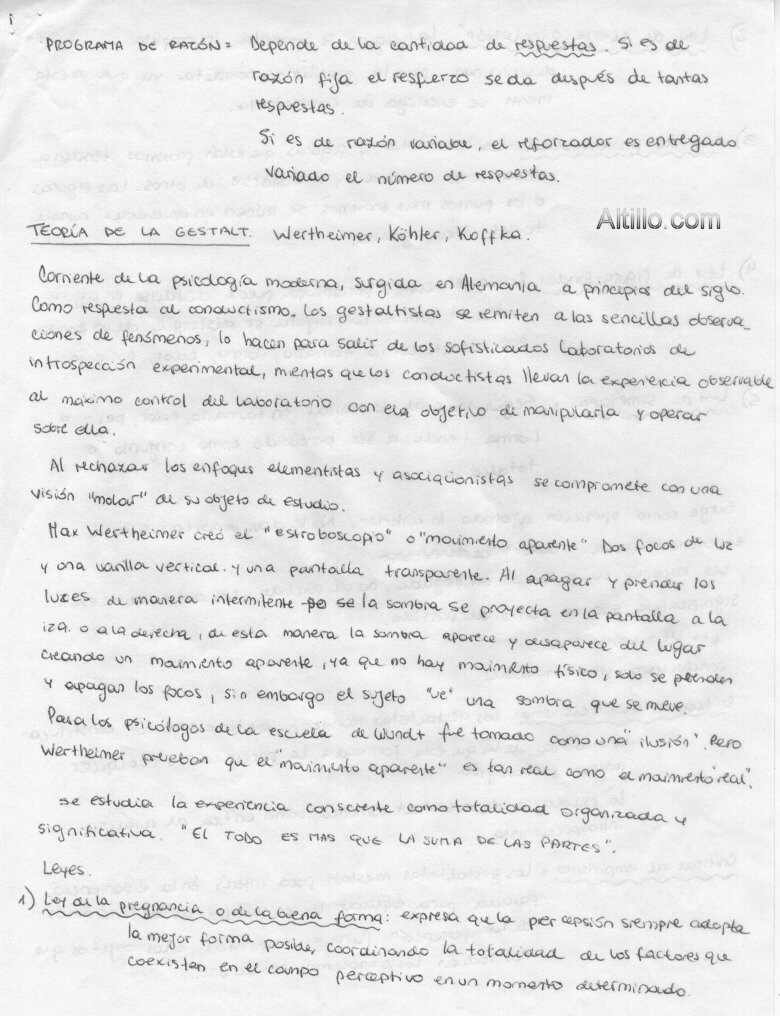 PROGRAMA DE RAZÓN= Depende de la cantidad de respuestas. Si es de
razón fija el resfuerzo se da después de tantas
respuestas.
Si es de razón variable, el reforzador es entregado
variado el número de respuestas.
Altillo.com
TEORÍA DE LA GESTALT. Wertheimer, Köhler, Koffka.
Corriente de la psicología moderna, surgida en Alemania a principios del siglo.
Como respuesta al conductismo. Los gestaltistas se remiten a las sencillas observa-
ciones de fenómenos, lo hacen para salir de los sofisticados laboratorios de
introspección experimental, mientas que los conductistas llevan la experiencia observable
al máximo control del laboratorio con el objetivo de manipularla y operar
sobre ella.
Al rechazar los enfoques elementistas y asociacionistas se compromete con una
visión "molar" de su objeto de estudio.
Max Wertheimer creó el "estroboscopio" o "movimiento aparente" Dos focos de luz
y una varilla vertical. y una pantalla transparente. Al apagar y prender los
luzes de manera intermitente se la sombra se proyecta en la pantalla a la
izq. o a la derecha, de esta manera la sombra aparece y desaparece del lugar
creando un movimiento aparente, ya que no hay movimiento físico, solo se prenden
y apagan los focos, sin embargo el sujeto "ve" una sombra que se mueve.
Para los psicólogos de la escuela de Wundt fue tomado como una "ilusión". Pero
Wertheimer prueban que el "movimiento aparente" es tan real como el movimiento "real".
se estudia la experiencia consciente como totalidad organizada y
significativa. "EL TODO ES MAS QUE LA SUMA DE LAS PARTES".
Leyes.
1) Ley de la pregnancia o de la buena forma: expresa que la percepción siempre adopta
la mejor forma posible, coordinando la totalidad de los factores que
coexisten en el campo perceptivo en un momento determinado.